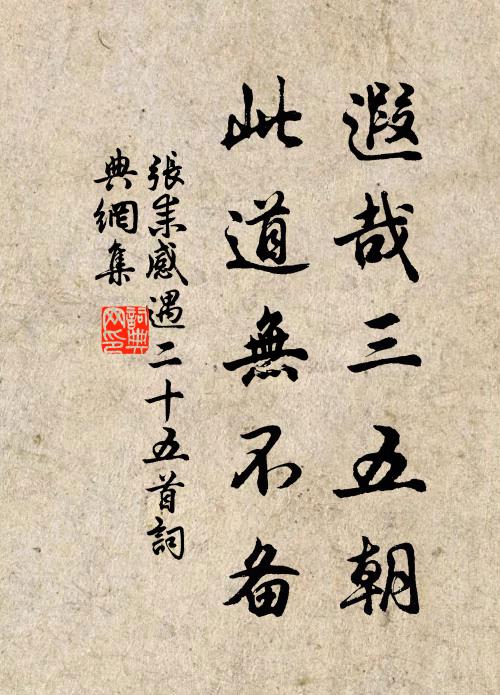 遐哉三五朝
此道無不备
張耒感遇二十五首詞
典網集
詞典
网印